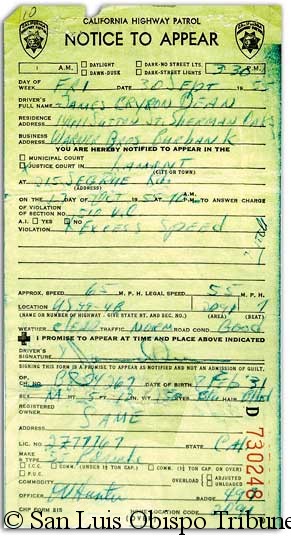 CALIFORNIA HIGHWAY PATROL
NOTICE TO APPEAR
A.M. DAYLIGHT DARK-NO STREET LTS. 3:30 P.M.
DAWN-DUSK DARK-STREET LIGHTS
DAY OF WEEK FRI 30 SEPT 19 55
DRIVER'S FULL NAME JAMES BYRON DEAN
RESIDENCE ADDRESS SUTTON ST. SHERMAN OAKS
BUSINESS ADDRESS WARNER BROS BURBANK
YOU ARE HEREBY NOTIFIED TO APPEAR IN THE
MUNICIPAL COURT
JUSTICE COURT IN LAMONT
(CITY OR TOWN)
AT
(ADDRESS)
ON THE 17 DAY OF OCT 19 55 10 A.M. P.M. TO ANSWER CHARGE
OF VIOLATION
OF SECTION NO. 510 V.C.
A.I. YES NO
VIOLATION Excess speed
APPROX. SPEED 65 M.P.H. LEGAL SPEED 55 M.P.H.
LOCATION US 99
(NAME OR NUMBER OF HIGHWAY - GIVE STREET NT. AND SEC. NO.) (AREA) (BEAT)
WEATHER clear TRAFFIC NORM ROAD COND. Good
I PROMISE TO APPEAR AT TIME AND PLACE ABOVE INDICATED
DRIVER'S SIGNATURE
SIGNING THIS FORM IS A PROMISE TO APPEAR AS NOTIFIED AND NOT AN ADMISSION OF GUILT.
OP. CH. NO. DATE OF BIRTH 8 Feb '31
SEX M HT. WT. EYES Blu HAIR Blond
REGISTERED OWNER SAME
ADDRESS
LIC. NO. 2Z77767 STATE CAL
MAKE & TYPE 55 Porsche
I.C.C. COMM. (UNDER 1½ TON CAP.) COMM. (1½ TON CAP. OR OVER)
P.U.C.
COMMODITY OVERLOAD ADJUSTED UNLOADED
OFFICER OV Hunter BADGE
CHP FORM 215 HOME LOCATION CODE
(OVER)
D 730248
© San Luis Obispo Tribune